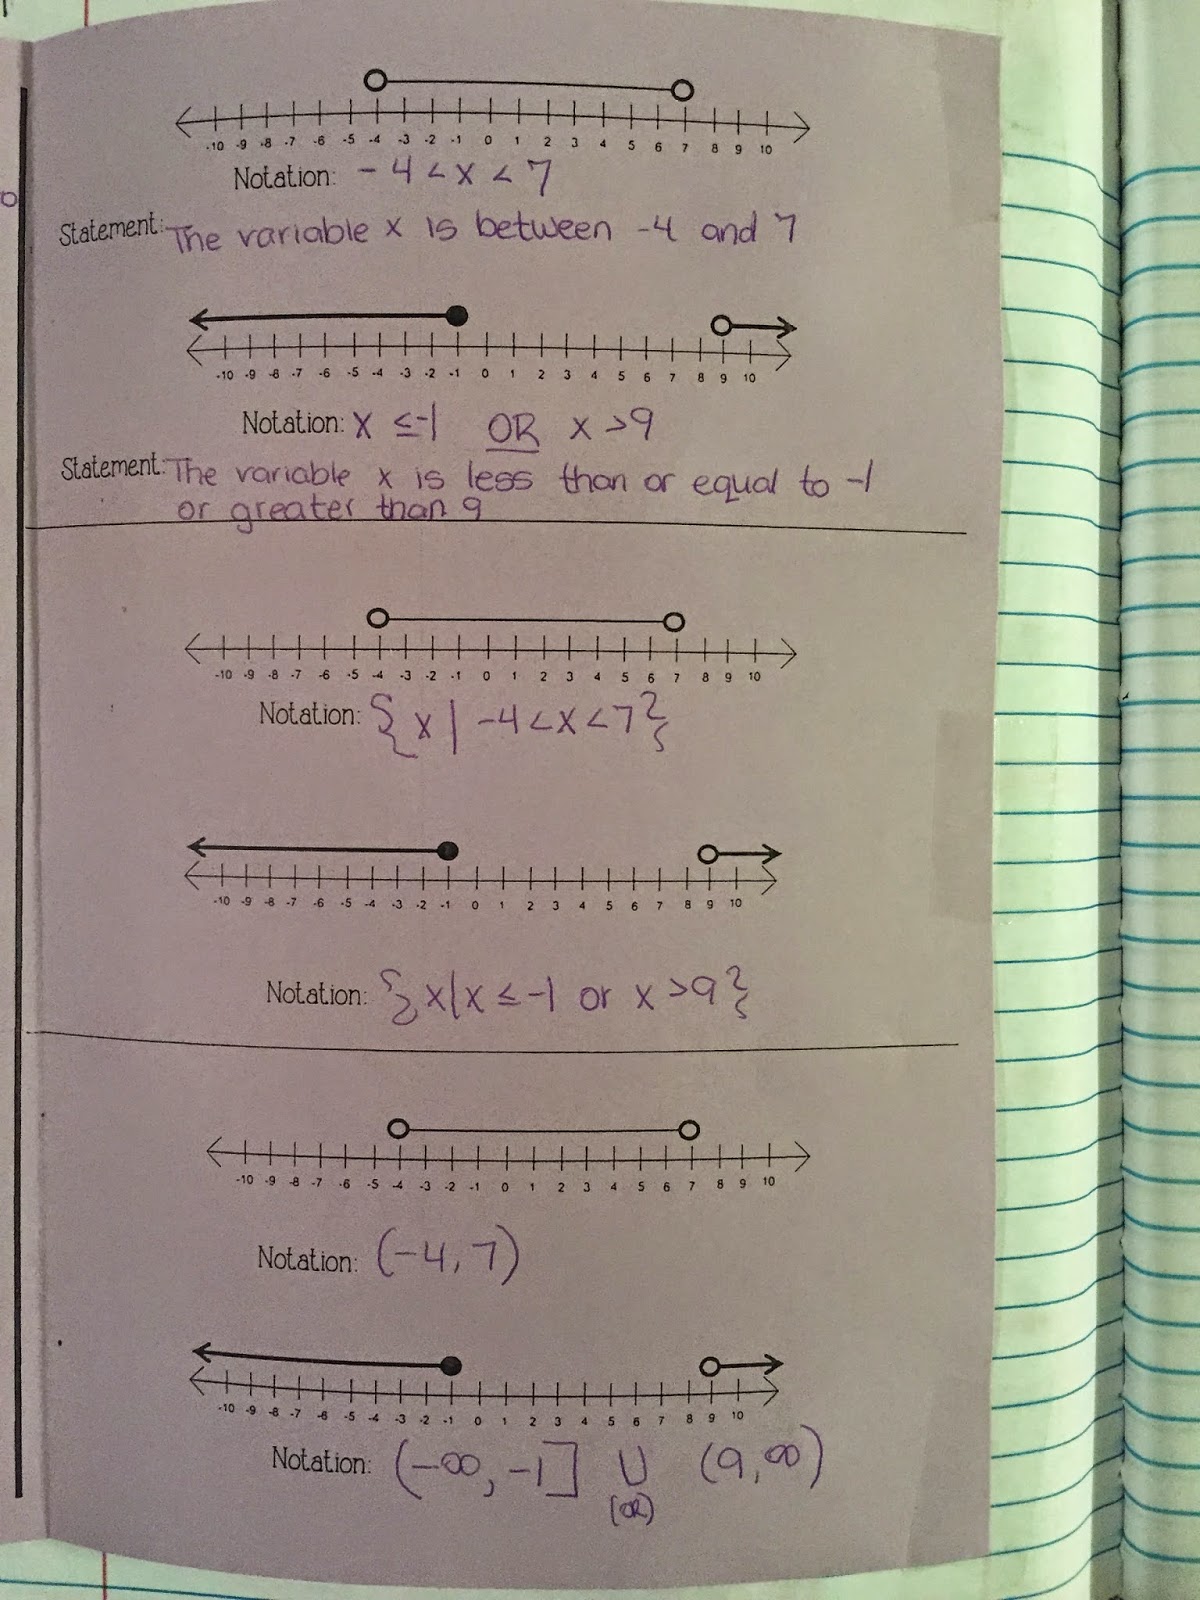 -10 -9 -8 -7 -6 -5 -4 -3 -2 -1 0 1 2 3 4 5 6 7 8 9 10
Notation: -4 < x < 7
Statement: The variable x is between -4 and 7
-10 -9 -8 -7 -6 -5 -4 -3 -2 -1 0 1 2 3 4 5 6 7 8 9 10
Notation: x ≤ -1 OR x > 9
Statement: The variable x is less than or equal to -1
or greater than 9
-10 -9 -8 -7 -6 -5 -4 -3 -2 -1 0 1 2 3 4 5 6 7 8 9 10
Notation: {x | -4 < x < 7}
-10 -9 -8 -7 -6 -5 -4 -3 -2 -1 0 1 2 3 4 5 6 7 8 9 10
Notation: {x | x ≤ -1 or x > 9}
-10 -9 -8 -7 -6 -5 -4 -3 -2 -1 0 1 2 3 4 5 6 7 8 9 10
Notation: (-4, 7)
-10 -9 -8 -7 -6 -5 -4 -3 -2 -1 0 1 2 3 4 5 6 7 8 9 10
Notation: (-∞, -1] ∪ (9, ∞)
(OR)